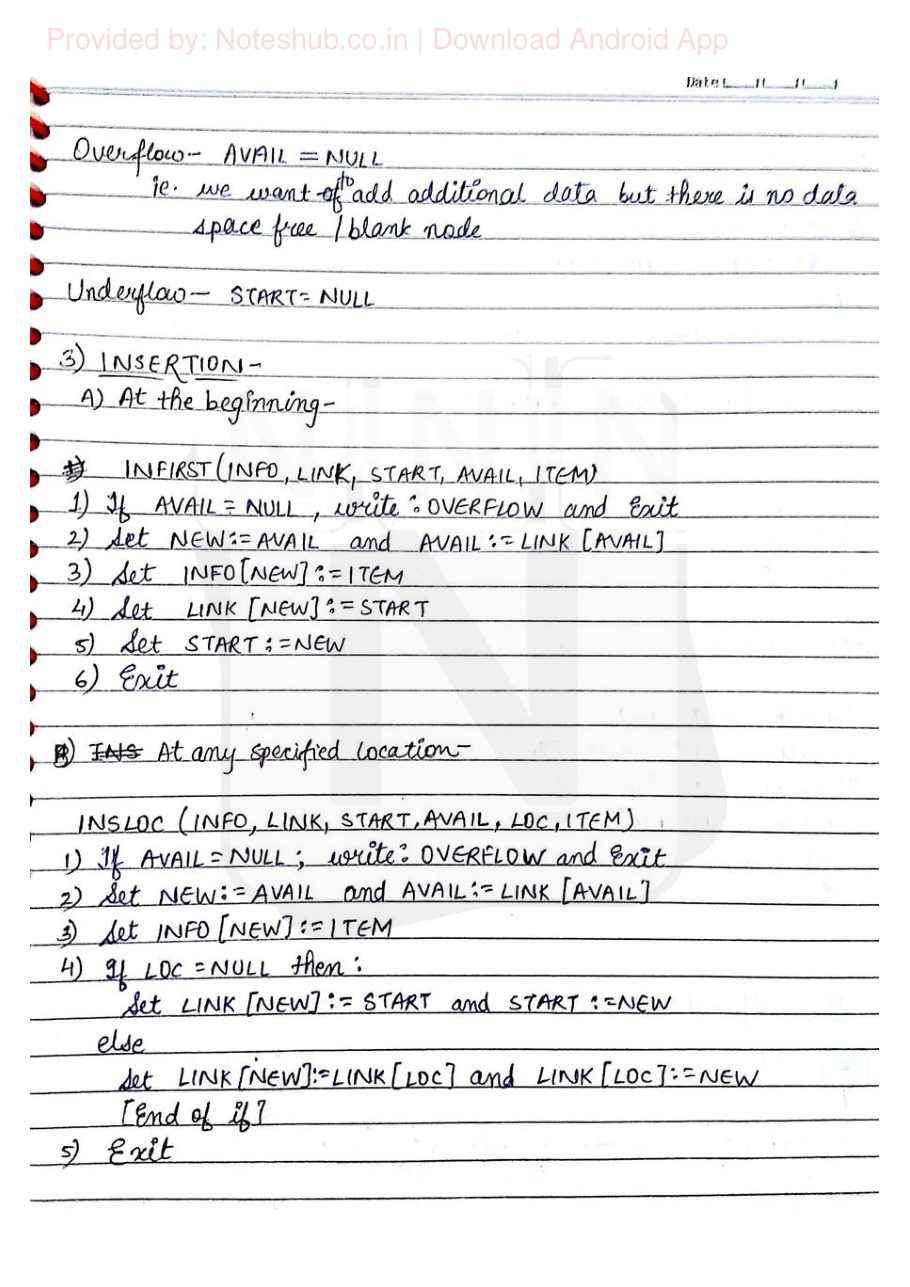 Provided by: Noteshub.co.in | Download Android App
Date
Overflow- AVAIL = NULL
ie. we want to add additional data but there is no data
space free / blank node
Underflow- START= NULL
3) INSERTION-
A) At the beginning-
INFIRST (INFO, LINK, START, AVAIL, ITEM)
1) If AVAIL = NULL, write: OVERFLOW and Exit
2) Set NEW:= AVAIL and AVAIL:= LINK [AVAIL]
3) Set INFO[NEW]:=ITEM
4) Set LINK [NEW]:= START
5) Set START:=NEW
6) Exit
B) INS At any specified location-
INSLOC (INFO, LINK, START, AVAIL, LOC, ITEM)
1) If AVAIL = NULL; write: OVERFLOW and Exit
2) Set NEW:= AVAIL and AVAIL:= LINK [AVAIL]
3) Set INFO [NEW]:= ITEM
4) If LOC = NULL then:
Set LINK [NEW]:= START and START:=NEW
else
Set LINK [NEW]:=LINK[LOC] and LINK [LOC]:=NEW
[End of if]
5) Exit